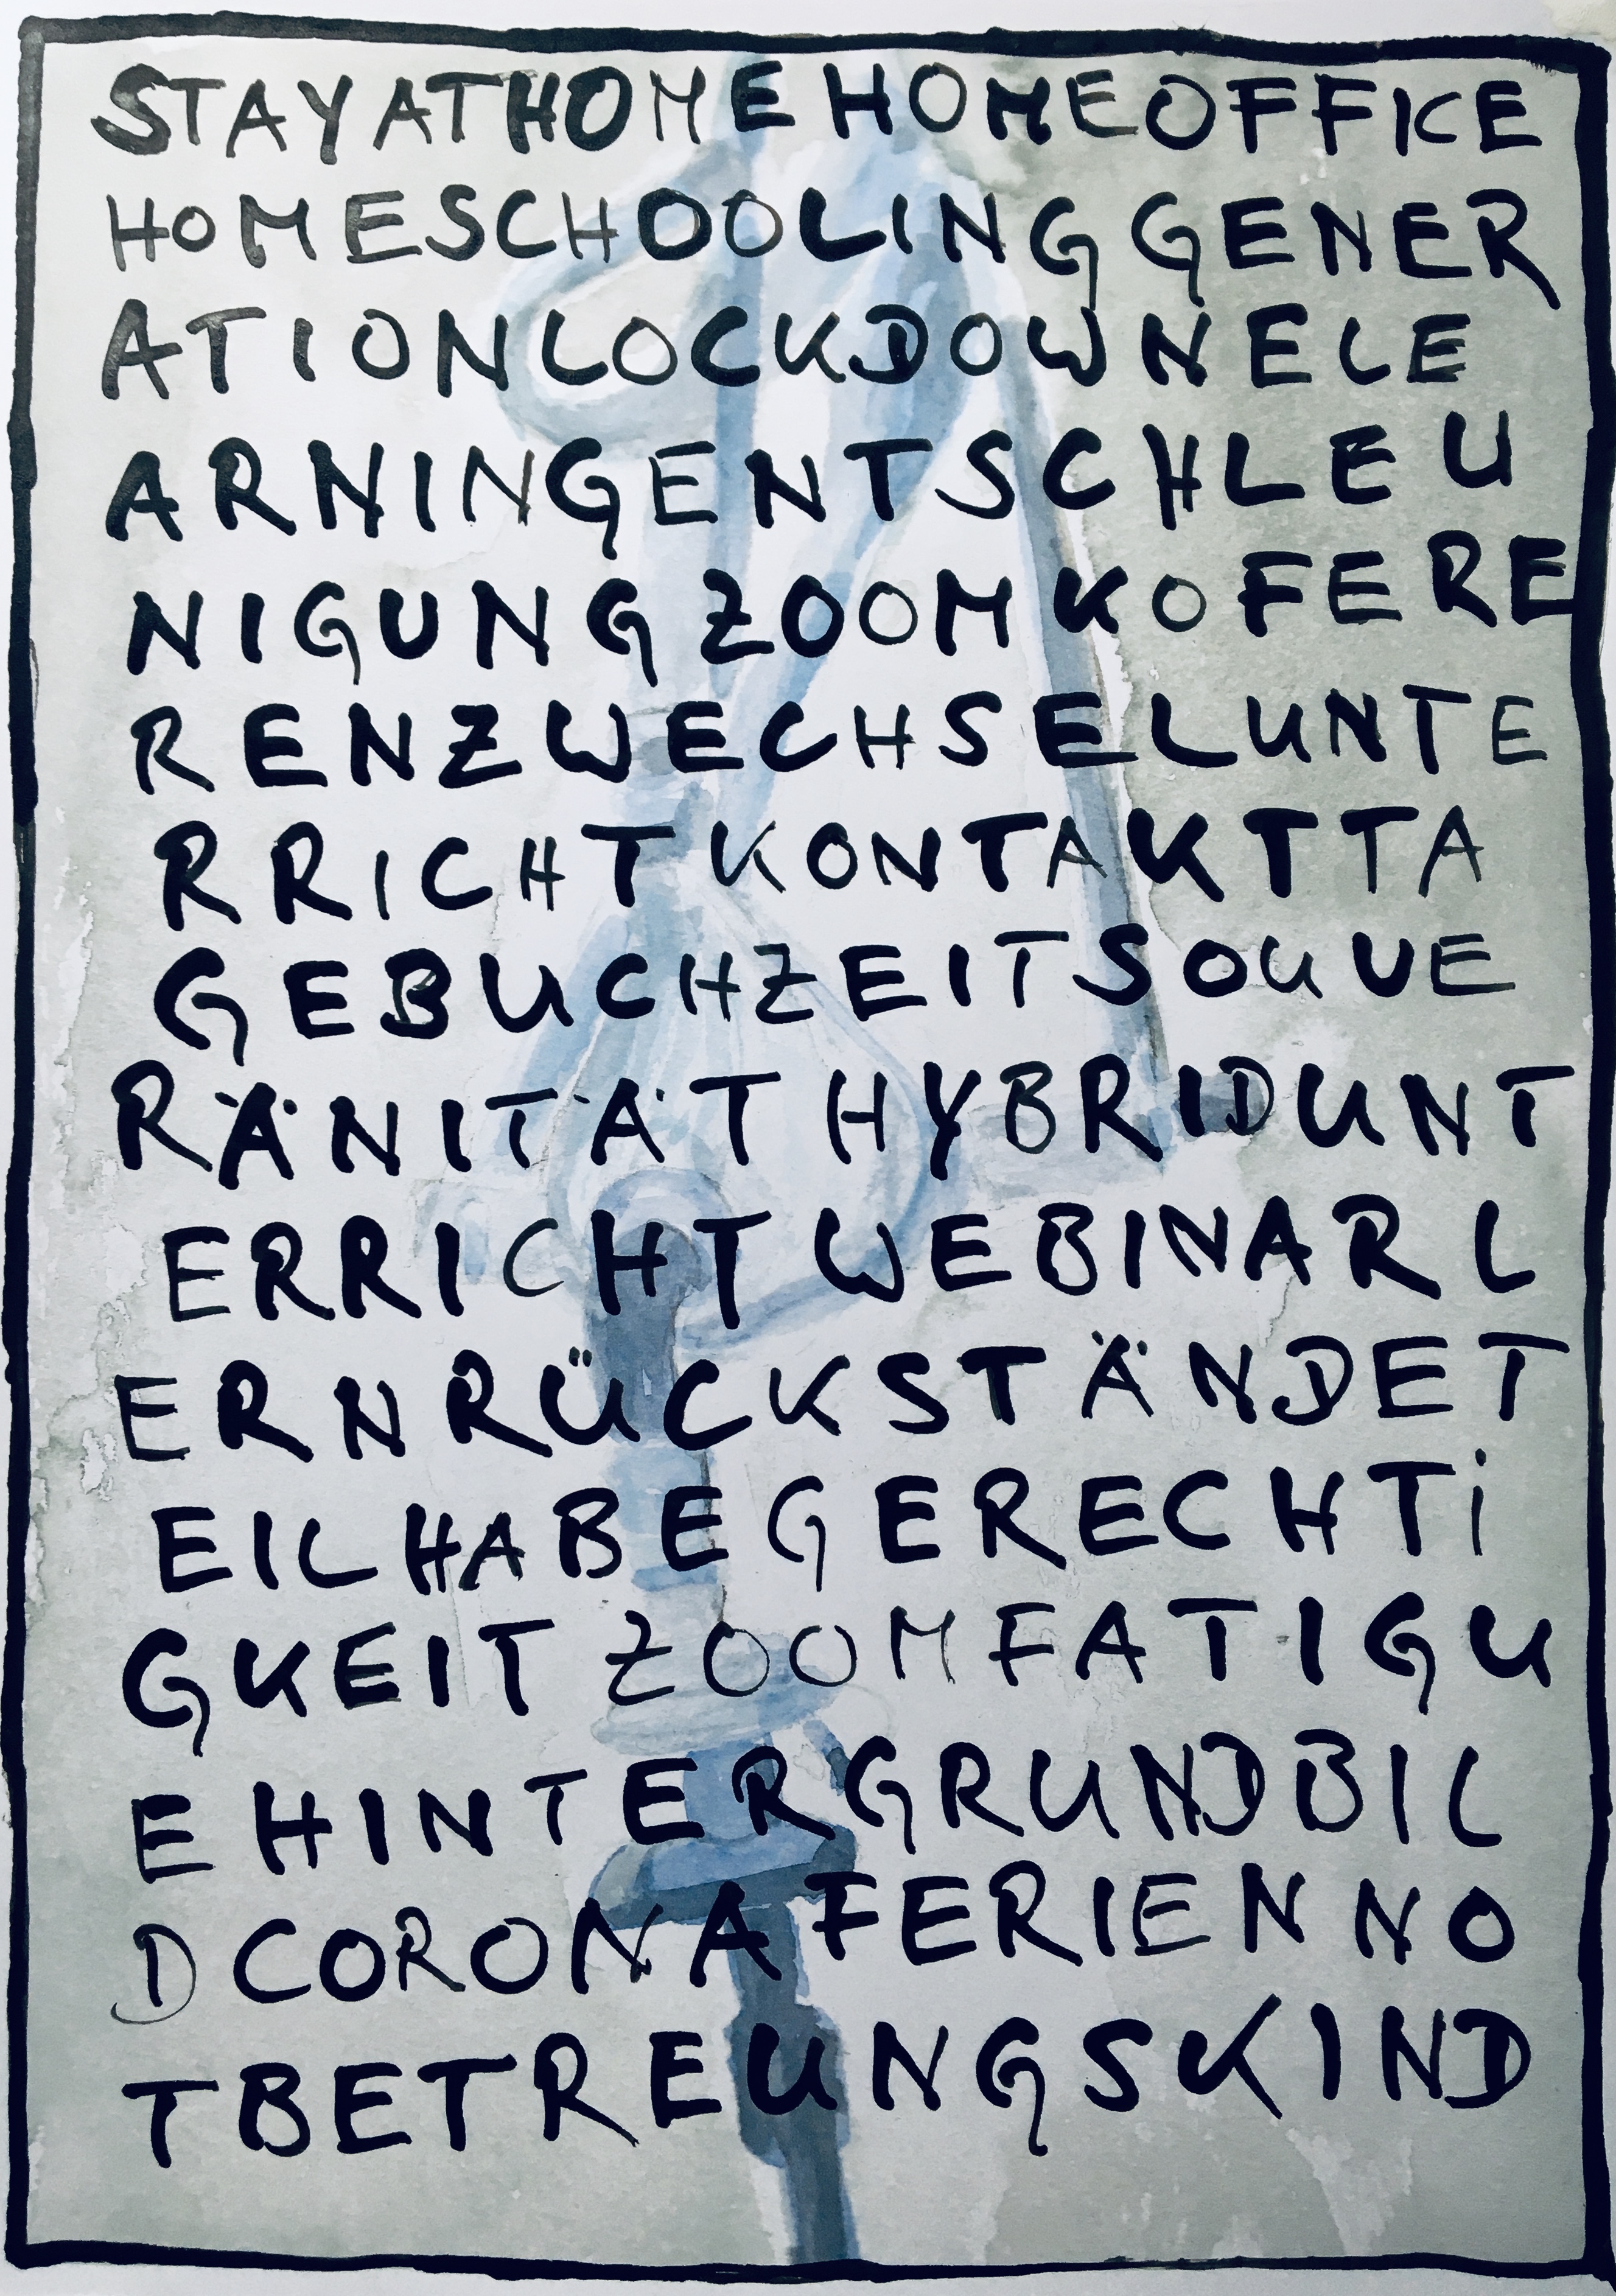 STAYATHOMEHOMEOFFICE
HOMESCHOOLINGGENER
ATIONLOCKDOWNELE
ARNINGENTSCHLEU
NIGUNGZOOMKOFERE
RENZWECHSELUNTE
RRICHTKONTAKTTA
GEBUCHZEITSOUVE
RÄNITÄTHYBRIDUNT
ERRICHTWEBINARL
ERNRÜCKSTÄNDET
EILHABEGERECHTi
GKEITZOOMFATIGU
EHINTERGRUNDBIL
DCORONAFERIENNO
TBETREUNGSKIND